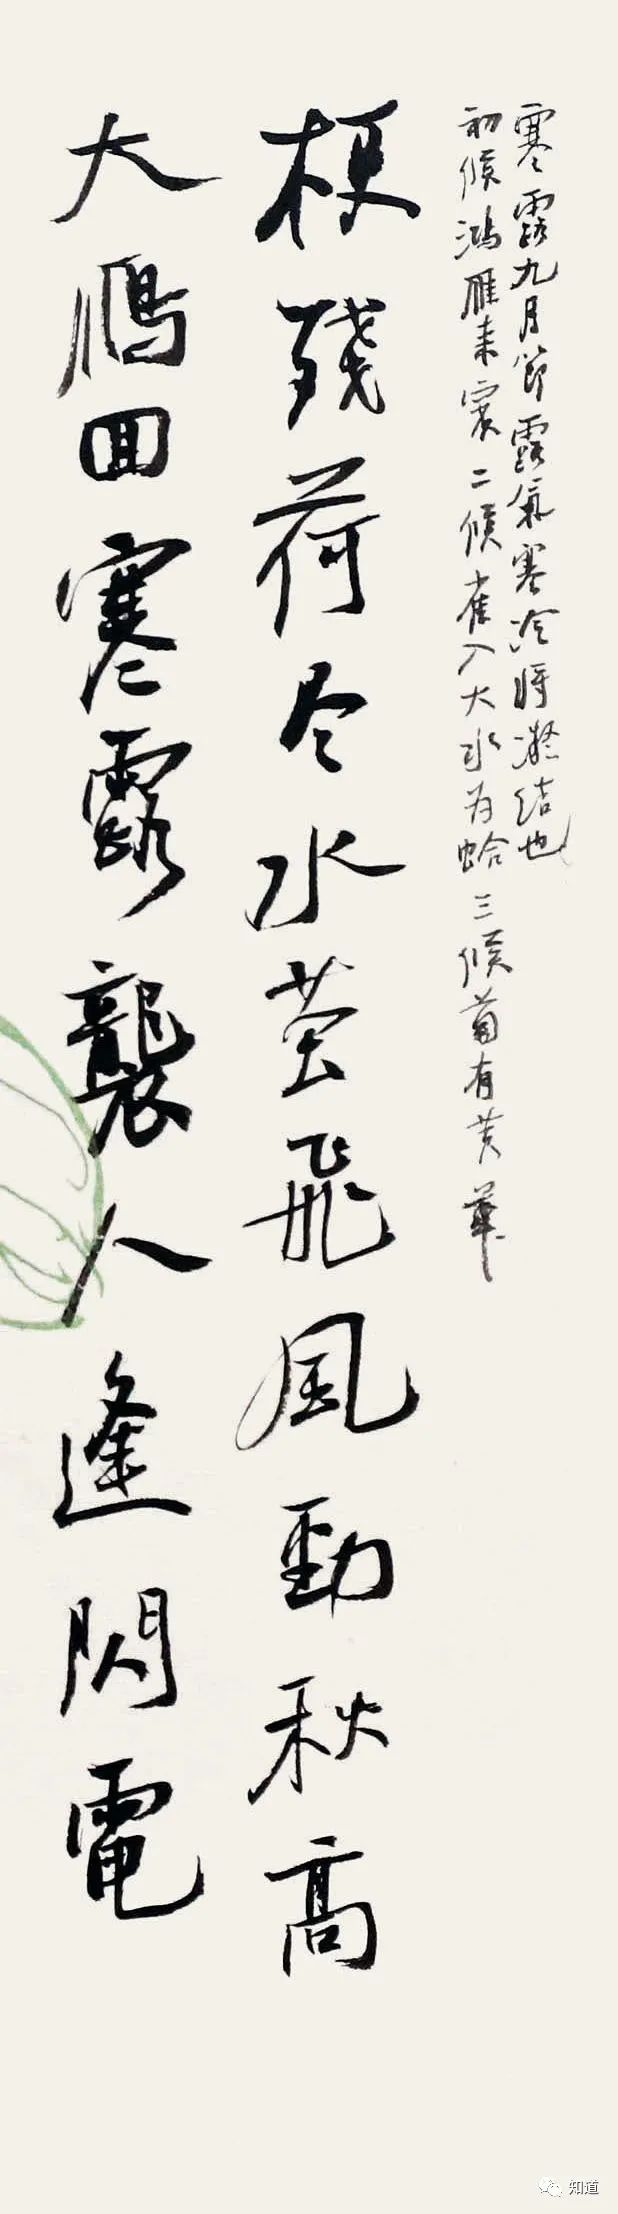 寒露九月節露氣寒冷將凝結也
初候鴻雁来賓二候雀入大水为蛤三候菊有黄華
梗殘荷尽水芸飛風勁秋高
大鵬囬寒露襲人逢閃電
知道